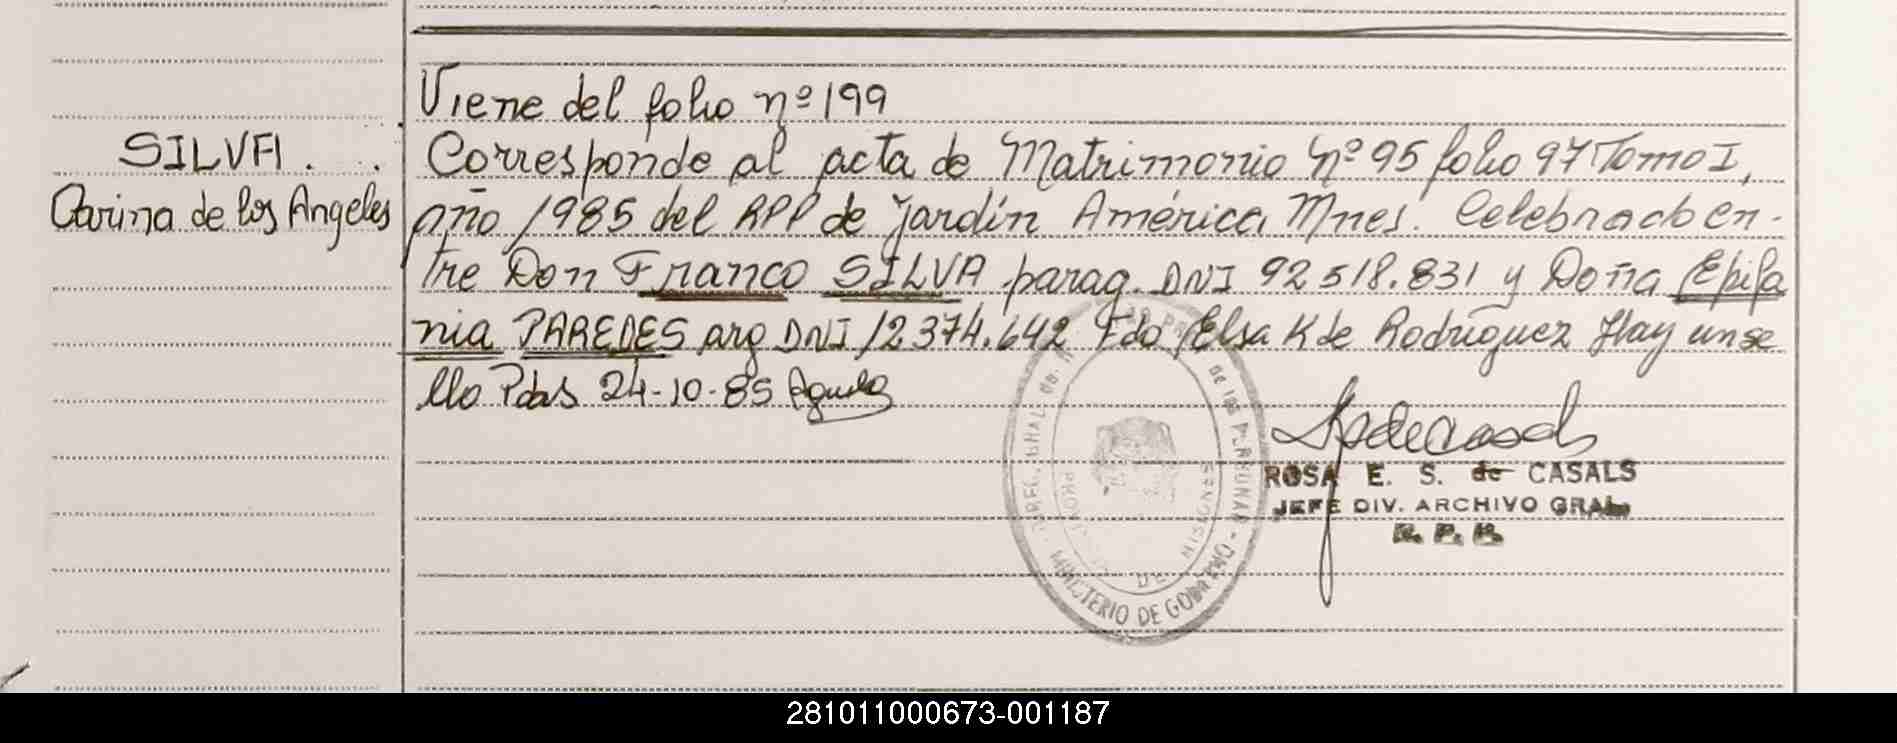 Viene del folio nº 199
SILVA.
Carina de los Angeles
Corresponde al acta de Matrimonio Nº 95 folio 97 Tomo I,
año 1985 del RPP de Jardín América, Mnes. Celebrado en-
tre Don Franco SILVA parag. DNI 92518.831 y Doña Epifa
nia PAREDES arg DNI 12.374.642 Fdo Elsa K de Rodríguez Hay un se
llo Pdas 24-10-85
ROSA E. S. de CASALS
JEFE DIV. ARCHIVO GRAL.
R. P. P.
MINISTERIO DE GOBIERNO
DE
MISIONES
281011000673-001187